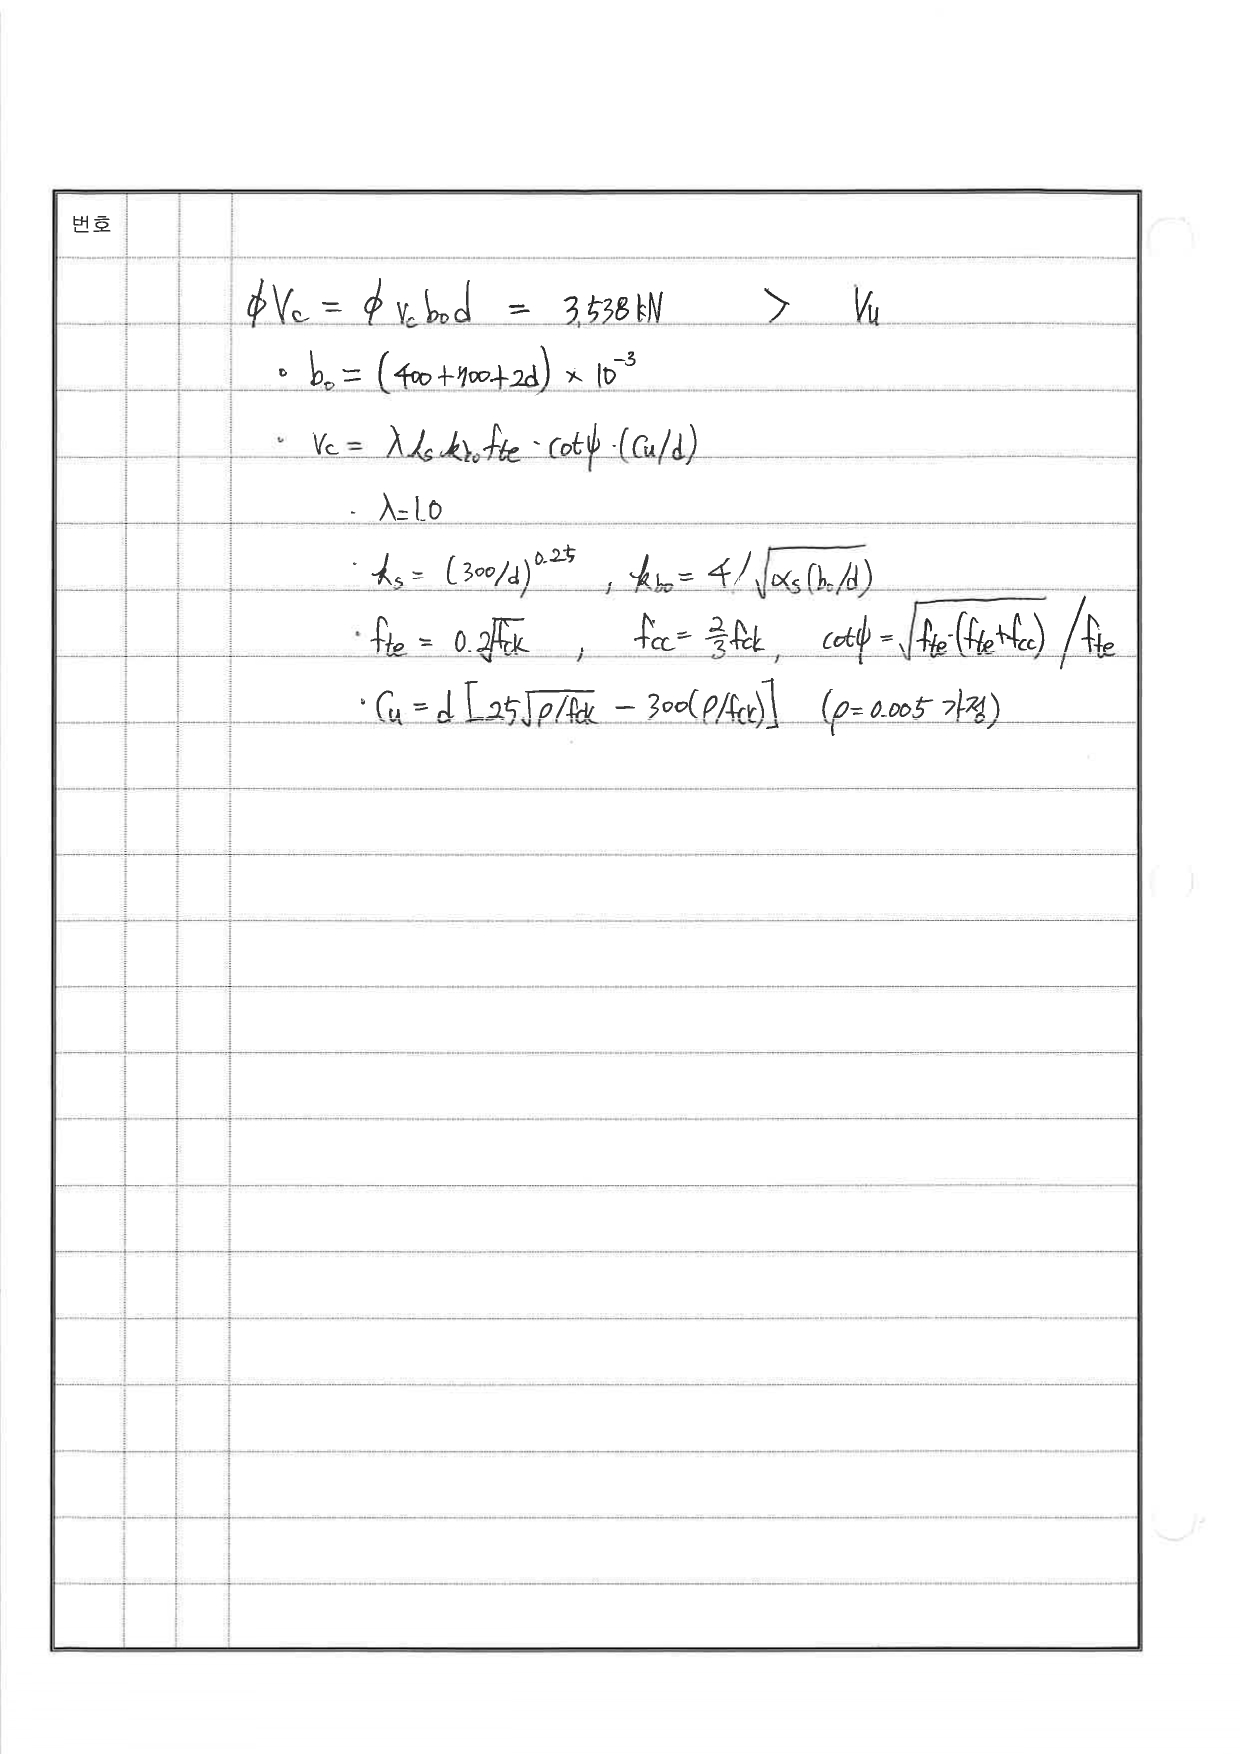 번호
φVc = φ vc bo d = 3,538 kN > Vu
• bo = (400+700+2d) × 10⁻³
• vc = λ ks kbo fte · cotψ · (Cu/d)
· λ=1.0
· ks = (300/d)^0.25 , kbo = 4/√(αs(bo/d))
· fte = 0.2√fck , fcc = 2/3 fck, cotψ = √(fte·(fte+fcc)) / fte
· Cu = d [25√(ρ/fck) − 300(ρ/fck)] (ρ=0.005 가정)